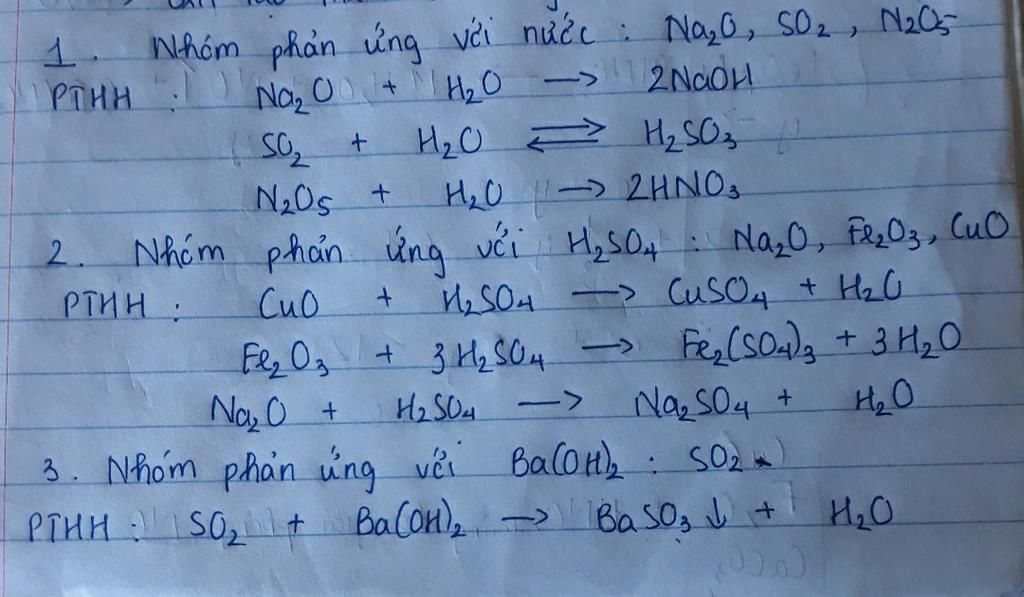 1. Nhóm phản ứng với nước : Na₂O, SO₂, N₂O₅
PTHH : Na₂O + H₂O → 2NaOH
SO₂ + H₂O ⇌ H₂SO₃
N₂O₅ + H₂O → 2HNO₃
2. Nhóm phản ứng với H₂SO₄ : Na₂O, Fe₂O₃, CuO
PTHH : CuO + H₂SO₄ → CuSO₄ + H₂O
Fe₂O₃ + 3H₂SO₄ → Fe₂(SO₄)₃ + 3H₂O
Na₂O + H₂SO₄ → Na₂SO₄ + H₂O
3. Nhóm phản ứng với Ba(OH)₂ : SO₂
PTHH : SO₂ + Ba(OH)₂ → BaSO₃↓ + H₂O